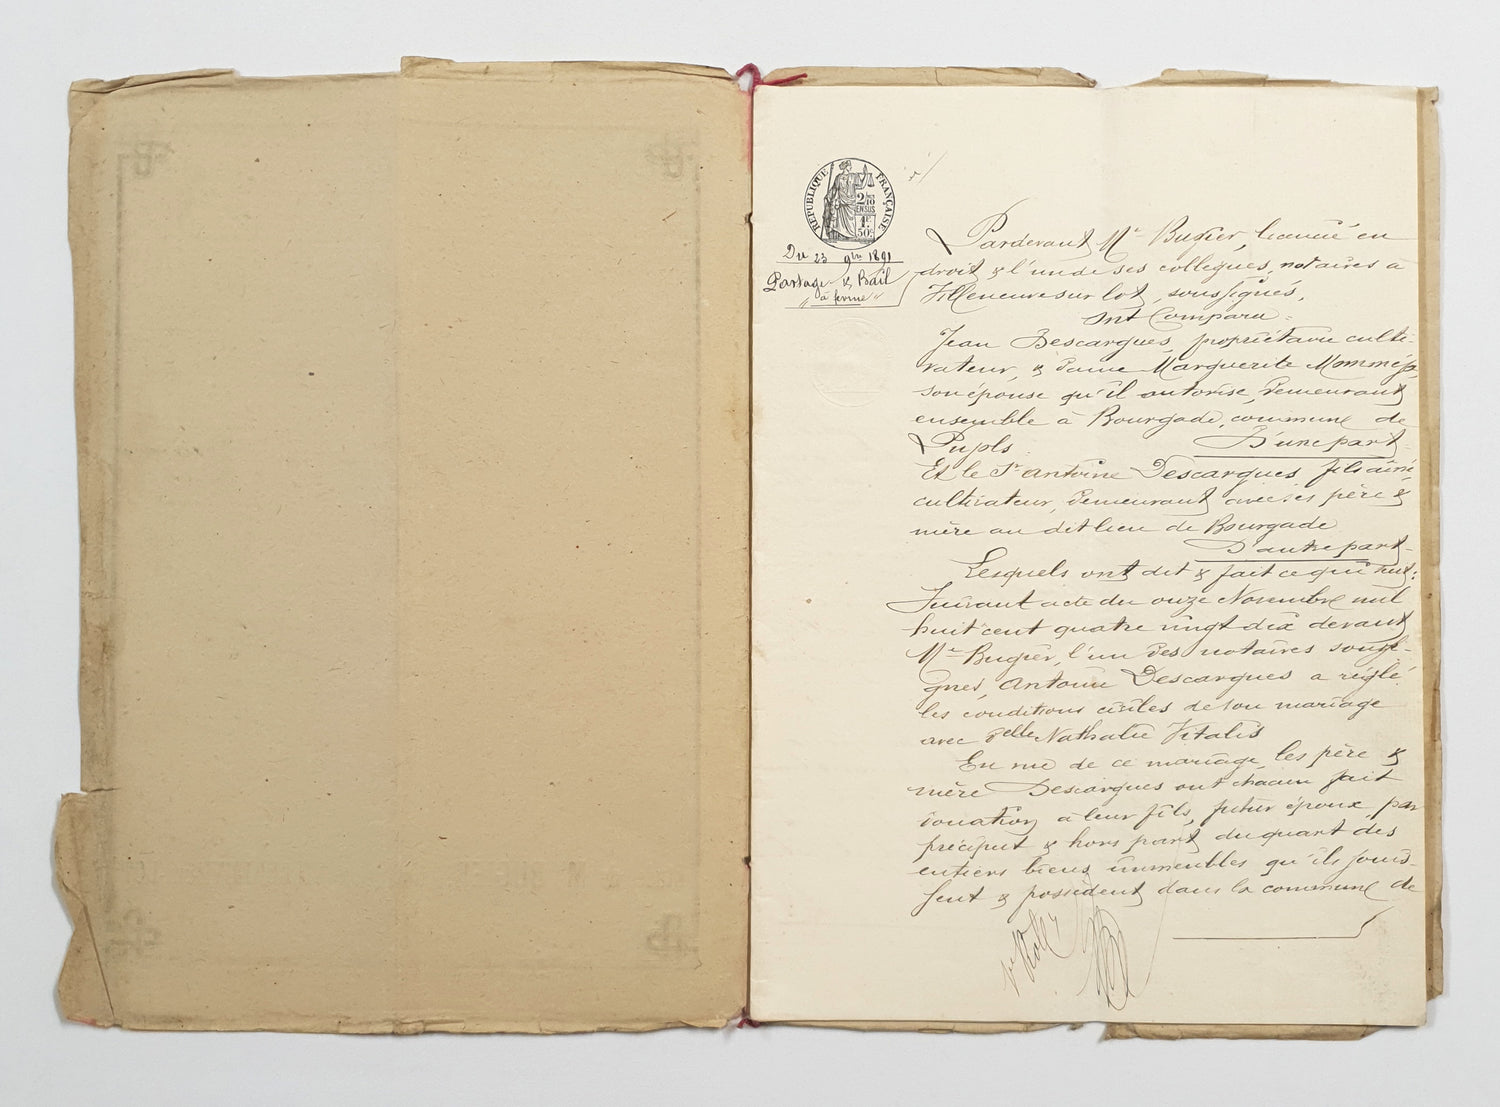 RÉPUBLIQUE FRANÇAISE
2/10
EN SUS
1F.
50c.
Du 23 9bre 1891
Partage & Bail
"à ferme"
Pardevant Me Bugier, licencié en
droit & l'un de ses collègues, notaires à
Villeneuve sur Lot, soussignés,
Ont Comparu =
Jean Descargues, propriétaire culti-
vateur, & Dame Marguerite
son épouse qu'il autorise, demeurant
ensemble à Bourgade, commune de
Pujols. D'une part.
Et le Sr Antoine Descargues fils aîné
cultivateur, demeurant avec ses père &
mère au dit lieu de Bourgade
D'autre part.
Lesquels ont dit & fait ce qui suit:
Suivant acte du onze Novembre mil
huit cent quatre vingt dix devant
Me Bugier, l'un des notaires soussi-
gnés, Antoine Descargues a réglé
les conditions civiles de son mariage
avec Delle Nathalie Vitalis
En vue de ce mariage, les père &
mère Descargues ont chacun fait
donation à leur fils, futur époux par
préciput & hors part du quart des
entiers biens immeubles qu'ils jouis-
sent & possèdent dans la commune de